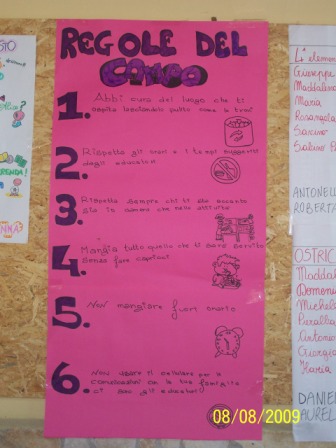 REGOLE DEL
CAMPO
1. Abbi cura del luogo che ti
ospita lasciandolo pulito come lo trovi
2. Rispetta gli orari e i tempi suggeriti
dagli educatori
3. Rispetta sempre chi ti sta accanto
sia in camera che nelle attività
4. Mangia tutto quello che ti sarà servito
senza fare capricci
5. Non mangiare fuori orario
6. Non usare il cellulare per le
comunicazioni con la tua famiglia
ci sono gli educatori
4° elemen
Giuseppe
Maddalena
Maria
Rosangela
Savino
Sabino
ANTONELL
ROBERTA
OSTRIC
Maddal
Domeni
Michele
Antonio
Giorgia
Ilaria
DANIEL
AUREL
08/08/2009